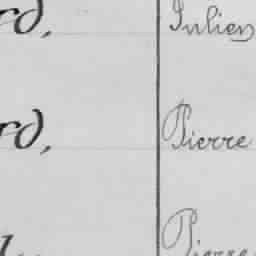 rd, Julien
rd, Pierre
Pierre